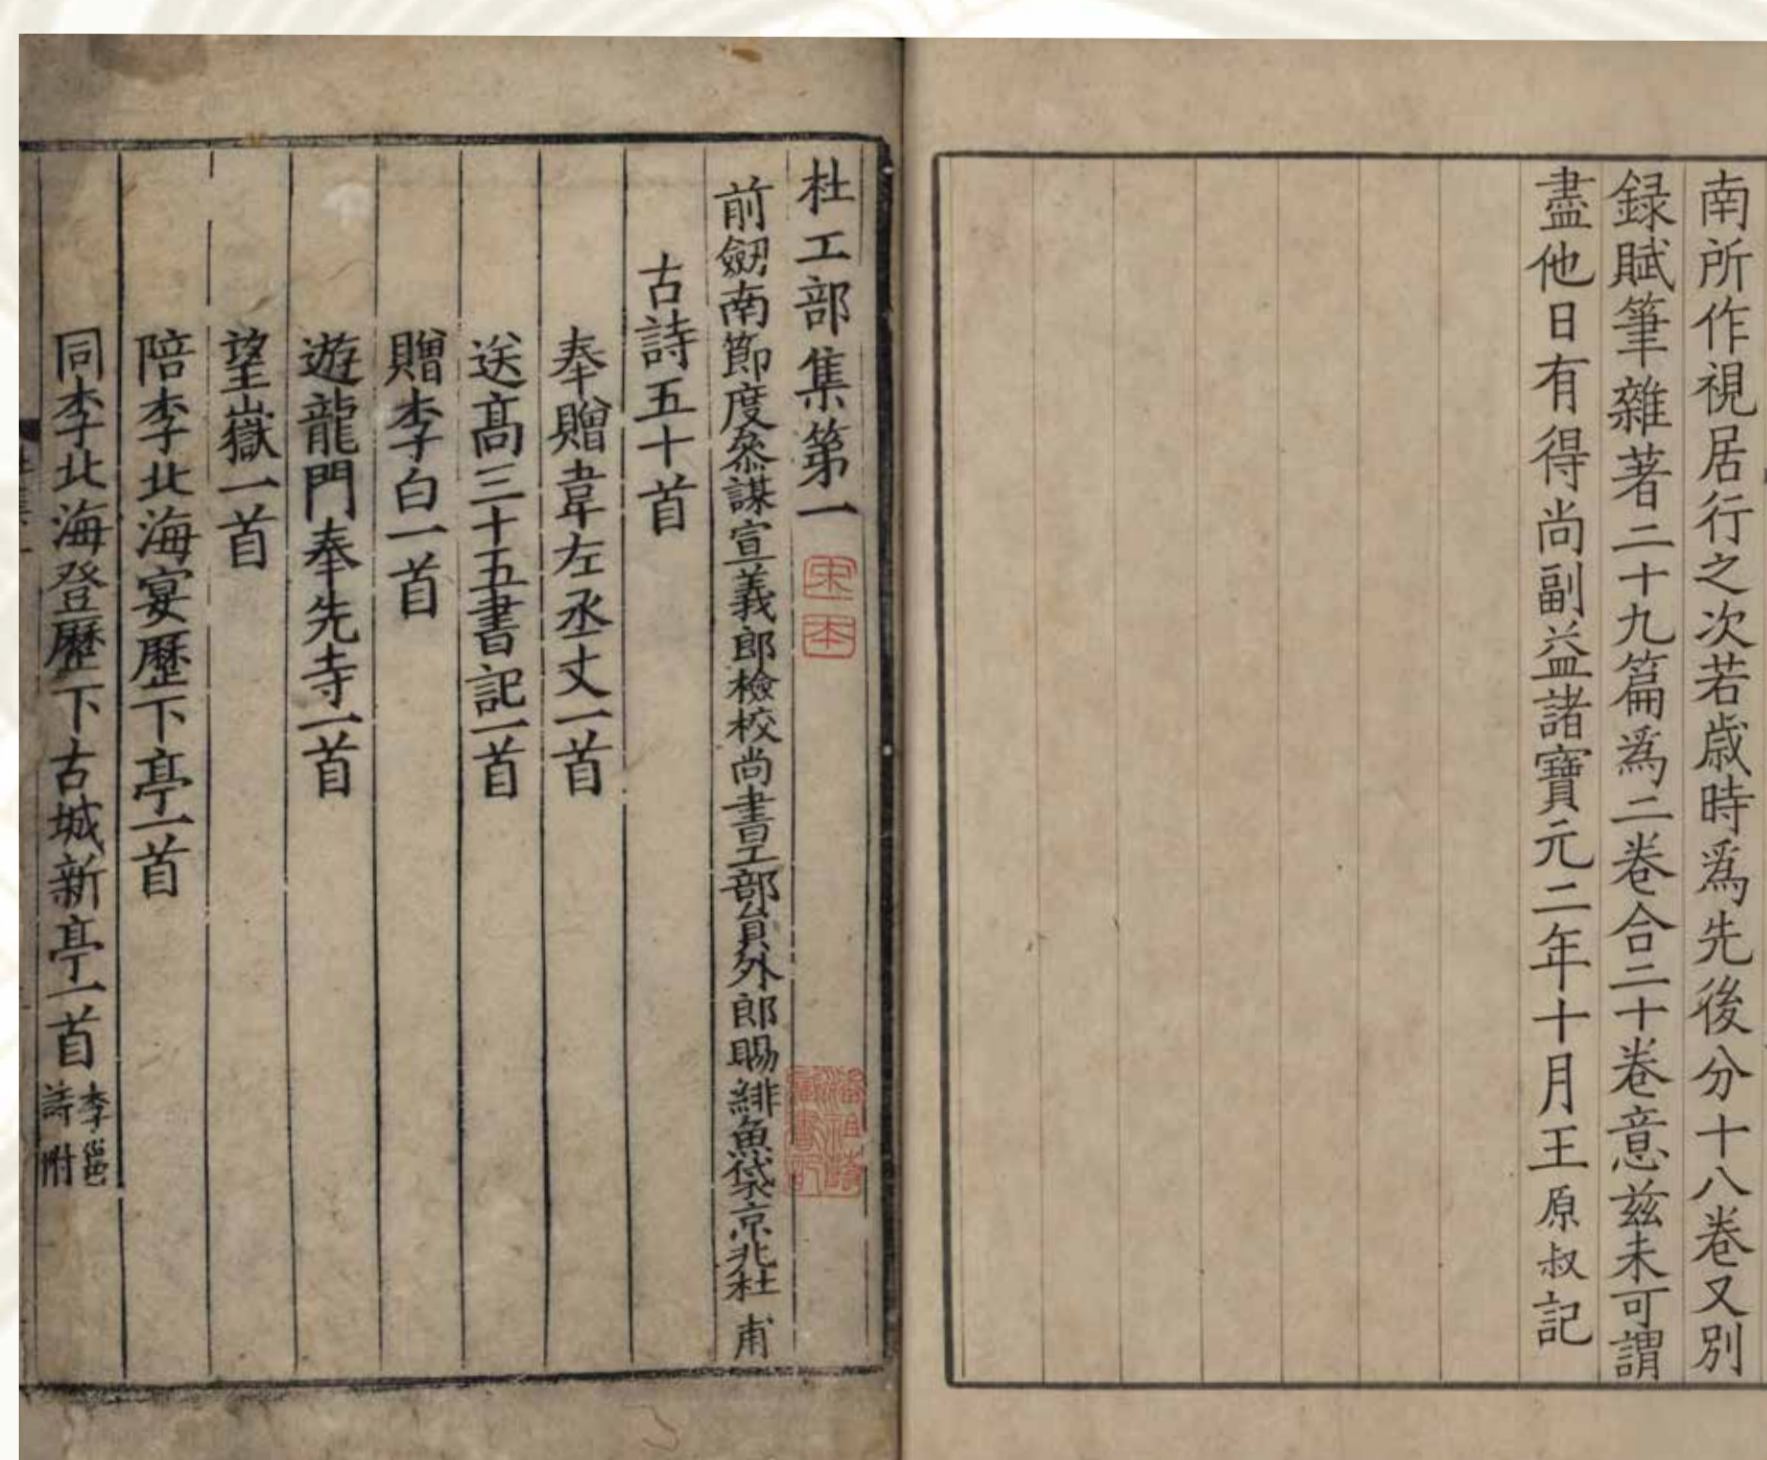 南所作視居行之次若歲時爲先後分十八卷又別
録賦筆雜著二十九篇爲二卷合二十卷意兹未可謂
盡他日有得尚副益諸寶元二年十月王原叔記
杜工部集第一
宋本
潘祖蔭藏書記
前劒南節度叅謀宣義郎檢校尚書工部貟外郎賜緋魚袋京兆杜甫
古詩五十首
奉贈韋左丞丈一首
送髙三十五書記一首
贈李白一首
遊龍門奉先寺一首
望嶽一首
陪李北海宴歷下亭一首
同李北海登歷下古城新亭一首 李邕詩附